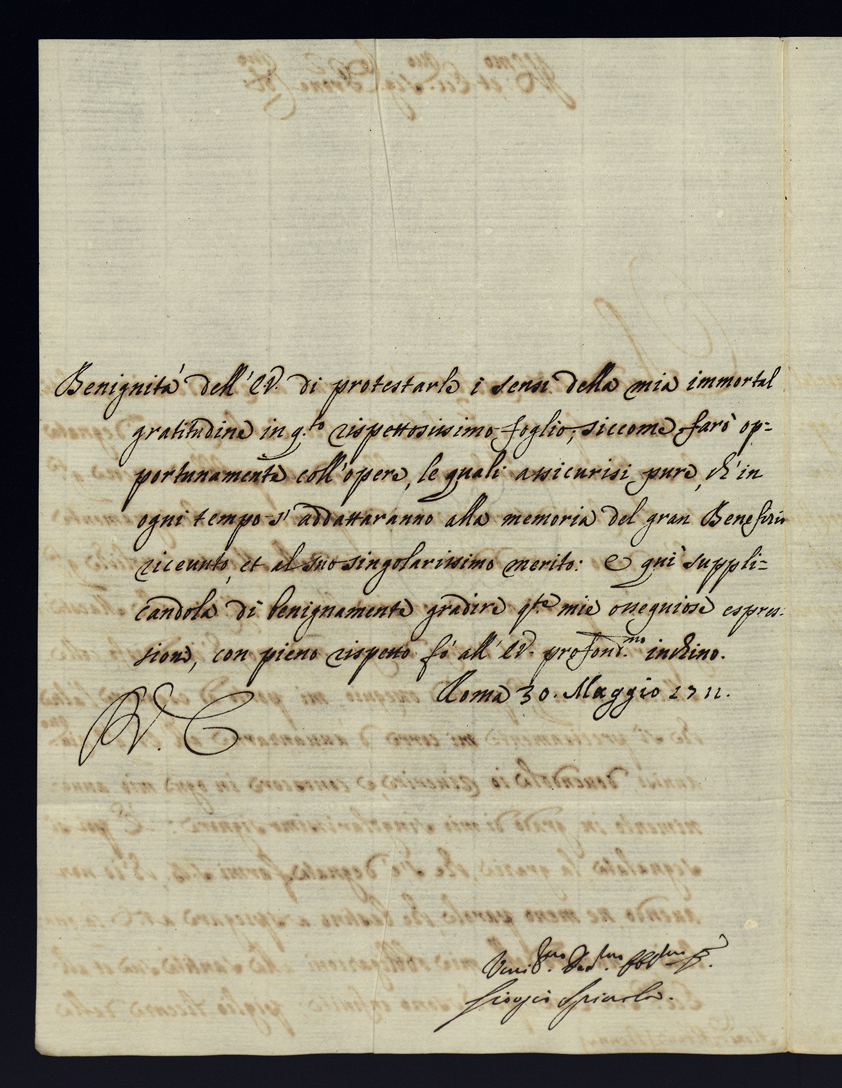 Benignità dell'EV. di protestarle i sensi della mia immortal
gratitudine in q.to rispettosissimo foglio, siccome farò op=
portunamente coll'opere, le quali assicurisi pure, ch'in
ogni tempo s'addattaranno alla memoria del gran Beneficio
ricevuto, et al suo singolarissimo merito: e quì suppli=
candola di benignamente gradire q.te mie ossequiose espres-
sioni, con pieno rispetto fò all'EV. profond.mo inchino.
Roma 30. Maggio 1711.
Giorgio Spinola.